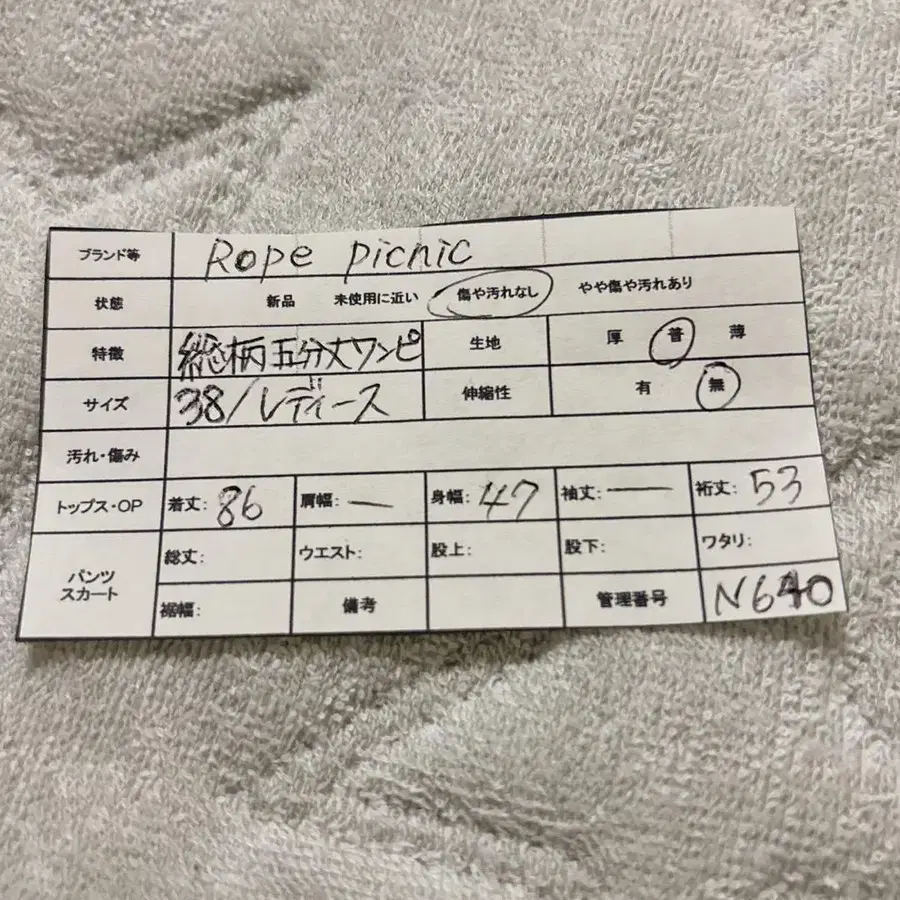 ブランド等 Rope picnic
状態 新品 未使用に近い 傷や汚れなし やや傷や汚れあり
特徴 総柄五分丈ワンピ 生地 厚 普 薄
サイズ 38/レディース 伸縮性 有 無
汚れ・傷み
トップス・OP 着丈: 86 肩幅: — 身幅: 47 袖丈: — 裄丈: 53
パンツ スカート 総丈: ウエスト: 股上: 股下: ワタリ:
裾幅: 備考 管理番号 N640